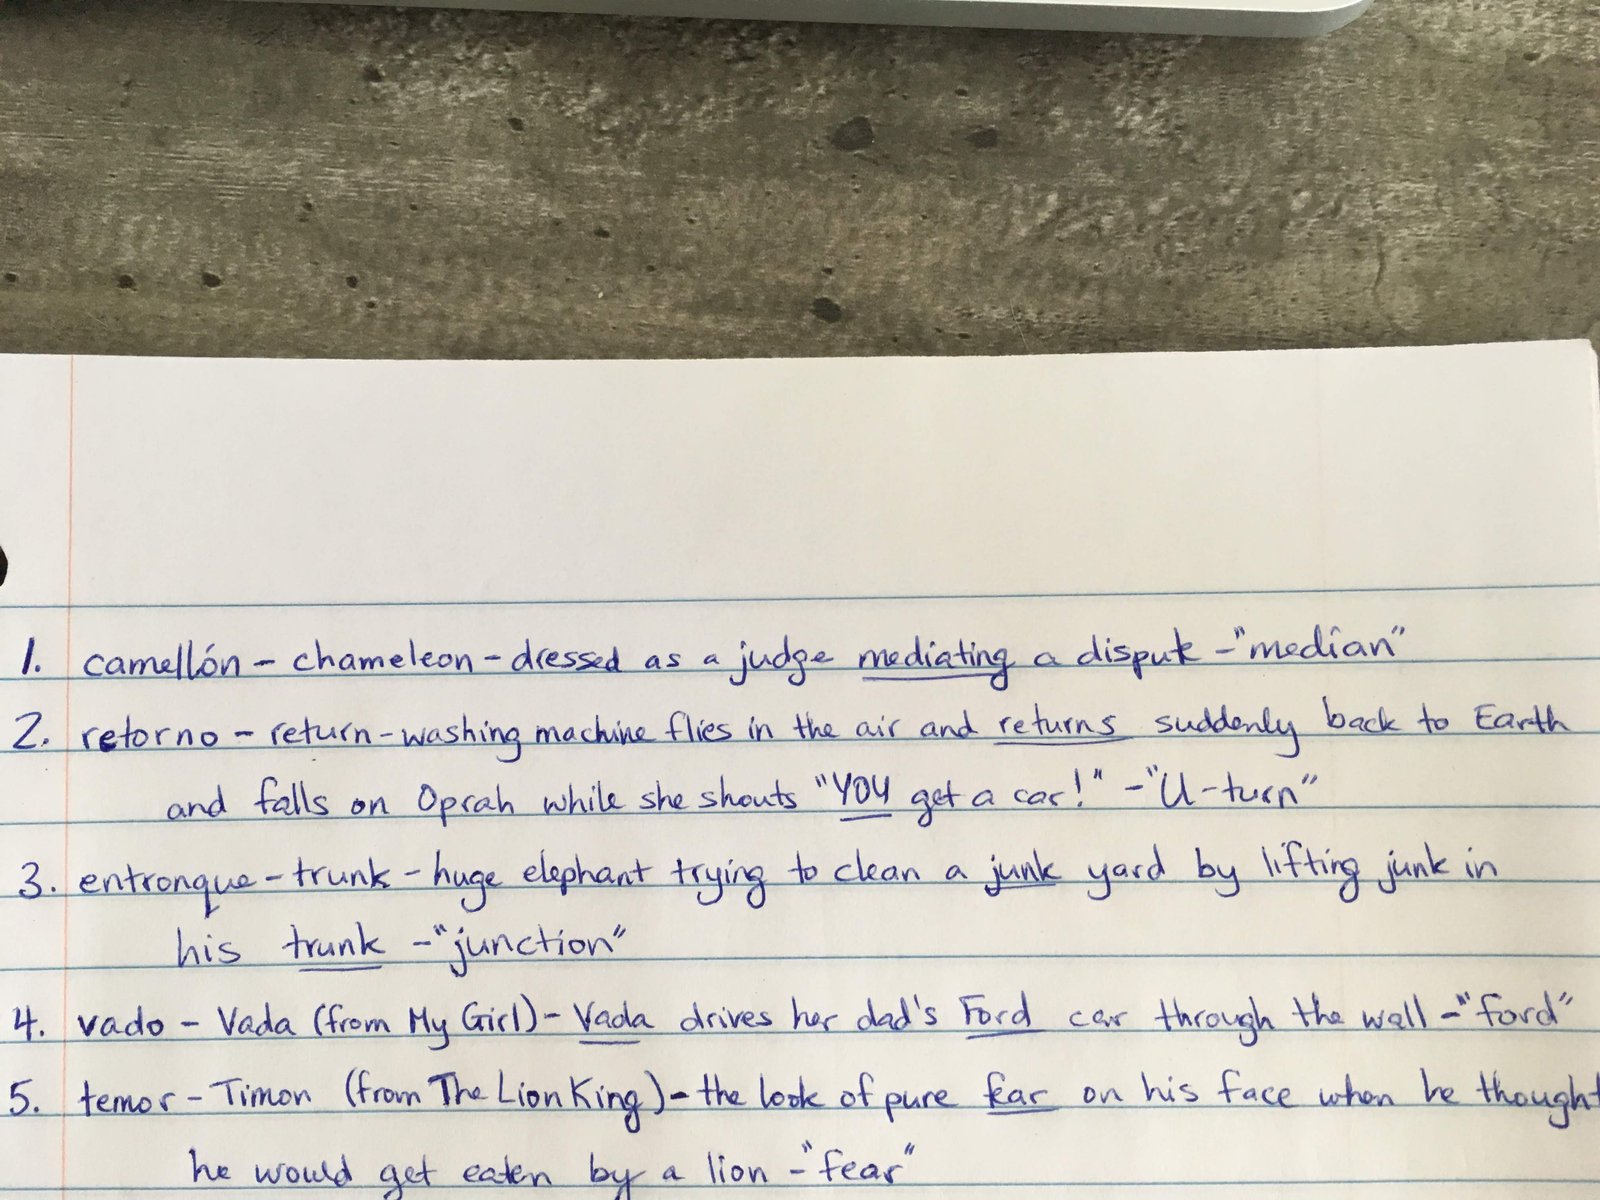 1. camellón - chameleon - dressed as a judge mediating a dispute - "median"
2. retorno - return - washing machine flies in the air and returns suddenly back to Earth
and falls on Oprah while she shouts "YOU get a car!" - "U-turn"
3. entronque - trunk - huge elephant trying to clean a junk yard by lifting junk in
his trunk - "junction"
4. vado - Vada (from My Girl) - Vada drives her dad's Ford car through the wall - "ford"
5. temor - Timon (from The Lion King) - the look of pure fear on his face when he thought
he would get eaten by a lion - "fear"